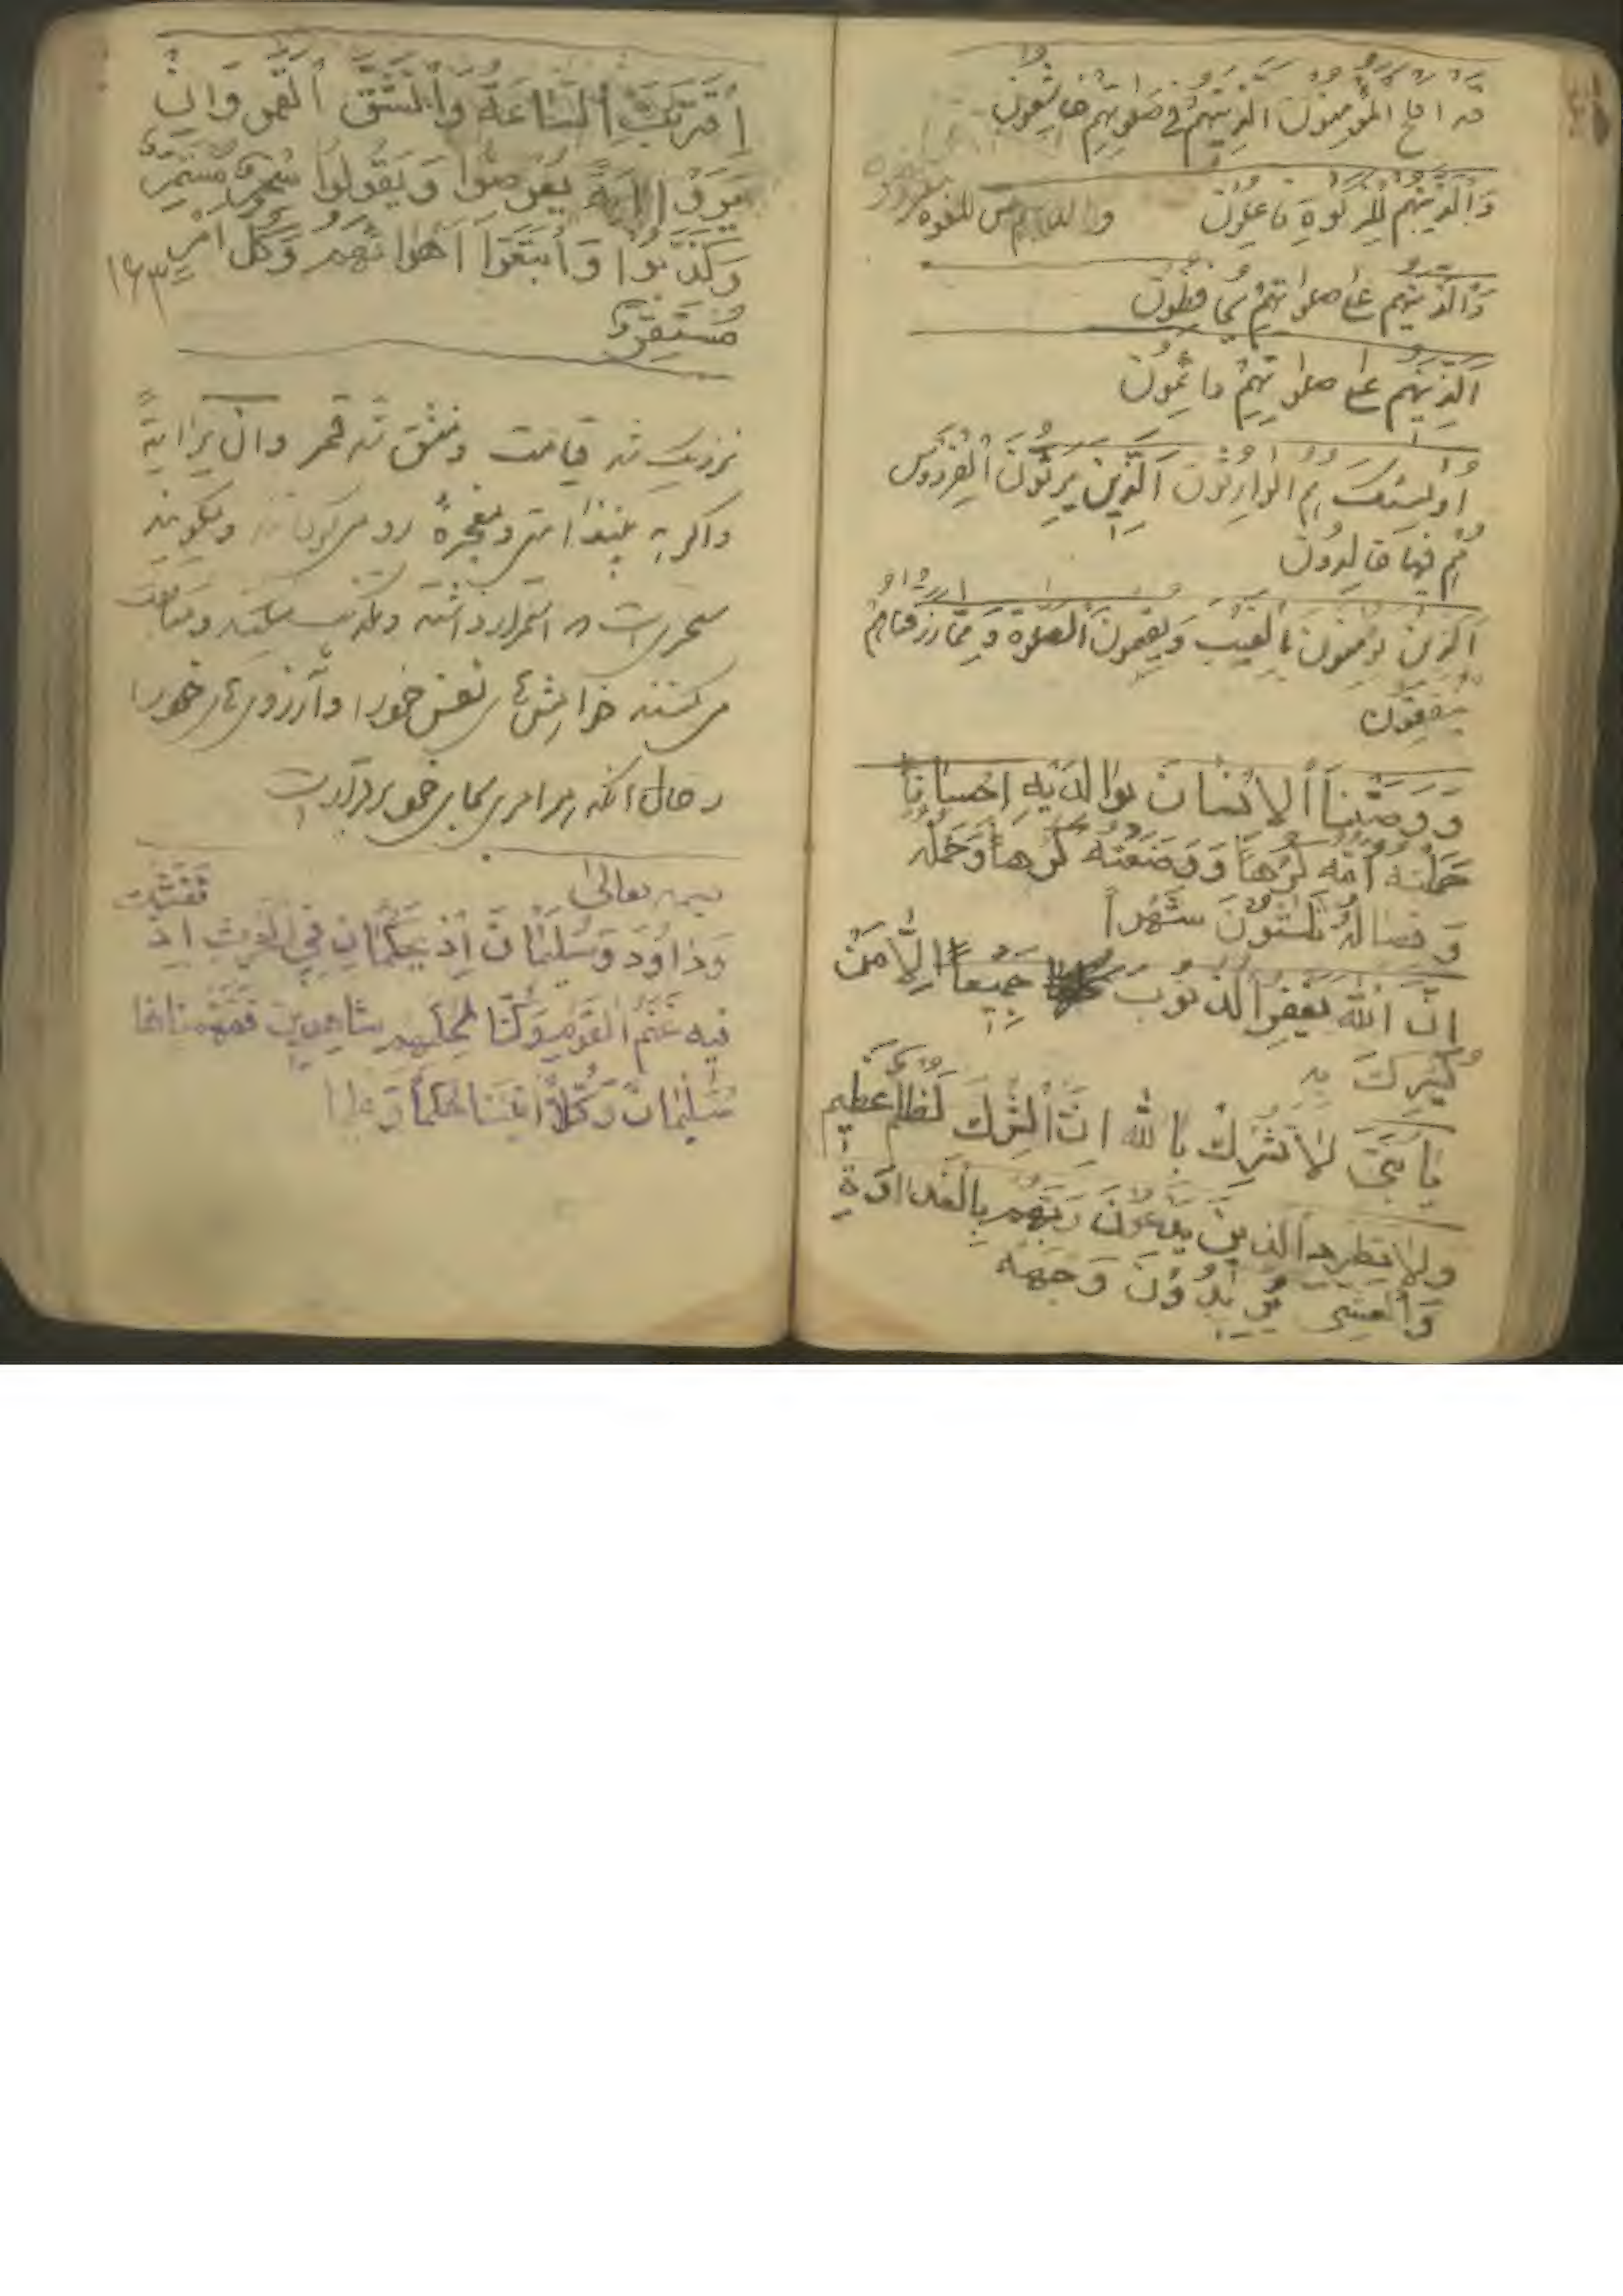 قد افلح المؤمنون الذينهم فی صلوتهم خاشعون
وَالَّذینهم للزکوةِ فاعلون
وَالَّذینهم علی صلواتهم یحافظون
اَلَّذینهم علی صلوتهم دائمون
اولئک هم الوارثون اَلَّذین یرثون الفردوس
هُم فیها خالدون
اَلذین یؤمنون بالغیب وَیقیمون الصلوة وَمِمّا رزقناهم
ینفقون
وَوَصَّیْنَا الاِنْسانَ بوالدَیْهِ اِحْساناً
حَمَلَتْهُ اُمُّه کُرْهاً وَوَضَعَتْهُ کُرْهاً وَحَمْلُه
وَفصالُهُ ثلٰثُونَ شَهْراً
اِنَّ اللّه یَغْفِرُ الذنوب جَمیعاً اِلّا مَنْ
یُشْرِک به
یا بُنَیَّ لا تُشْرِکْ بِاللّه اِنَّ الشِّرْکَ لَظُلْمٌ عَظیم
ولا تطرد الذین یدعون رَبَّهُم بِالغداوةِ
وَالعشی یُریدُونَ وَجْهَهُ
اِقْتَرَبَتِ السّاعَةُ وَانْشَقَّ القَمَر وَاِنْ
یَرَوْا ایَةً یُعْرِضُوا وَیَقُولُوا سِحْرٌ مُسْتَمِرٌّ
وَکَذَّبُوا وَاتَّبَعُوا اَهْوائَهُم وَکُلّ اَمْرٍ
مُسْتَقِرٌّ
نزدیک شد قیامت ومنشق شد قمر وان یرا ایةً
واگر به بینند ایتی ومعجزهٔ رو می‌گردانند ومیگویند
سحری است استمرار داشته وتکذیب میکنند ومتابعت
می‌کنند خواهش‌های نفس خود را وآرزوی‌های خود را
در حال آنکه هر امری بجای خود برقرار است
بسمه تعالی
وَداوُدَ وَسُلَیْمانَ اِذْ یَحْکُمانِ فِی الحَرْثِ اِذْ نَفَشَتْ
فیهِ غَنَمُ القَوْمِ وَکُنّا لِحُکْمِهِم شاهِدین فَفَهَّمْناها
سُلَیْمانَ وَکُلّاً اتَیْنا حُکْماً وَعِلْماً